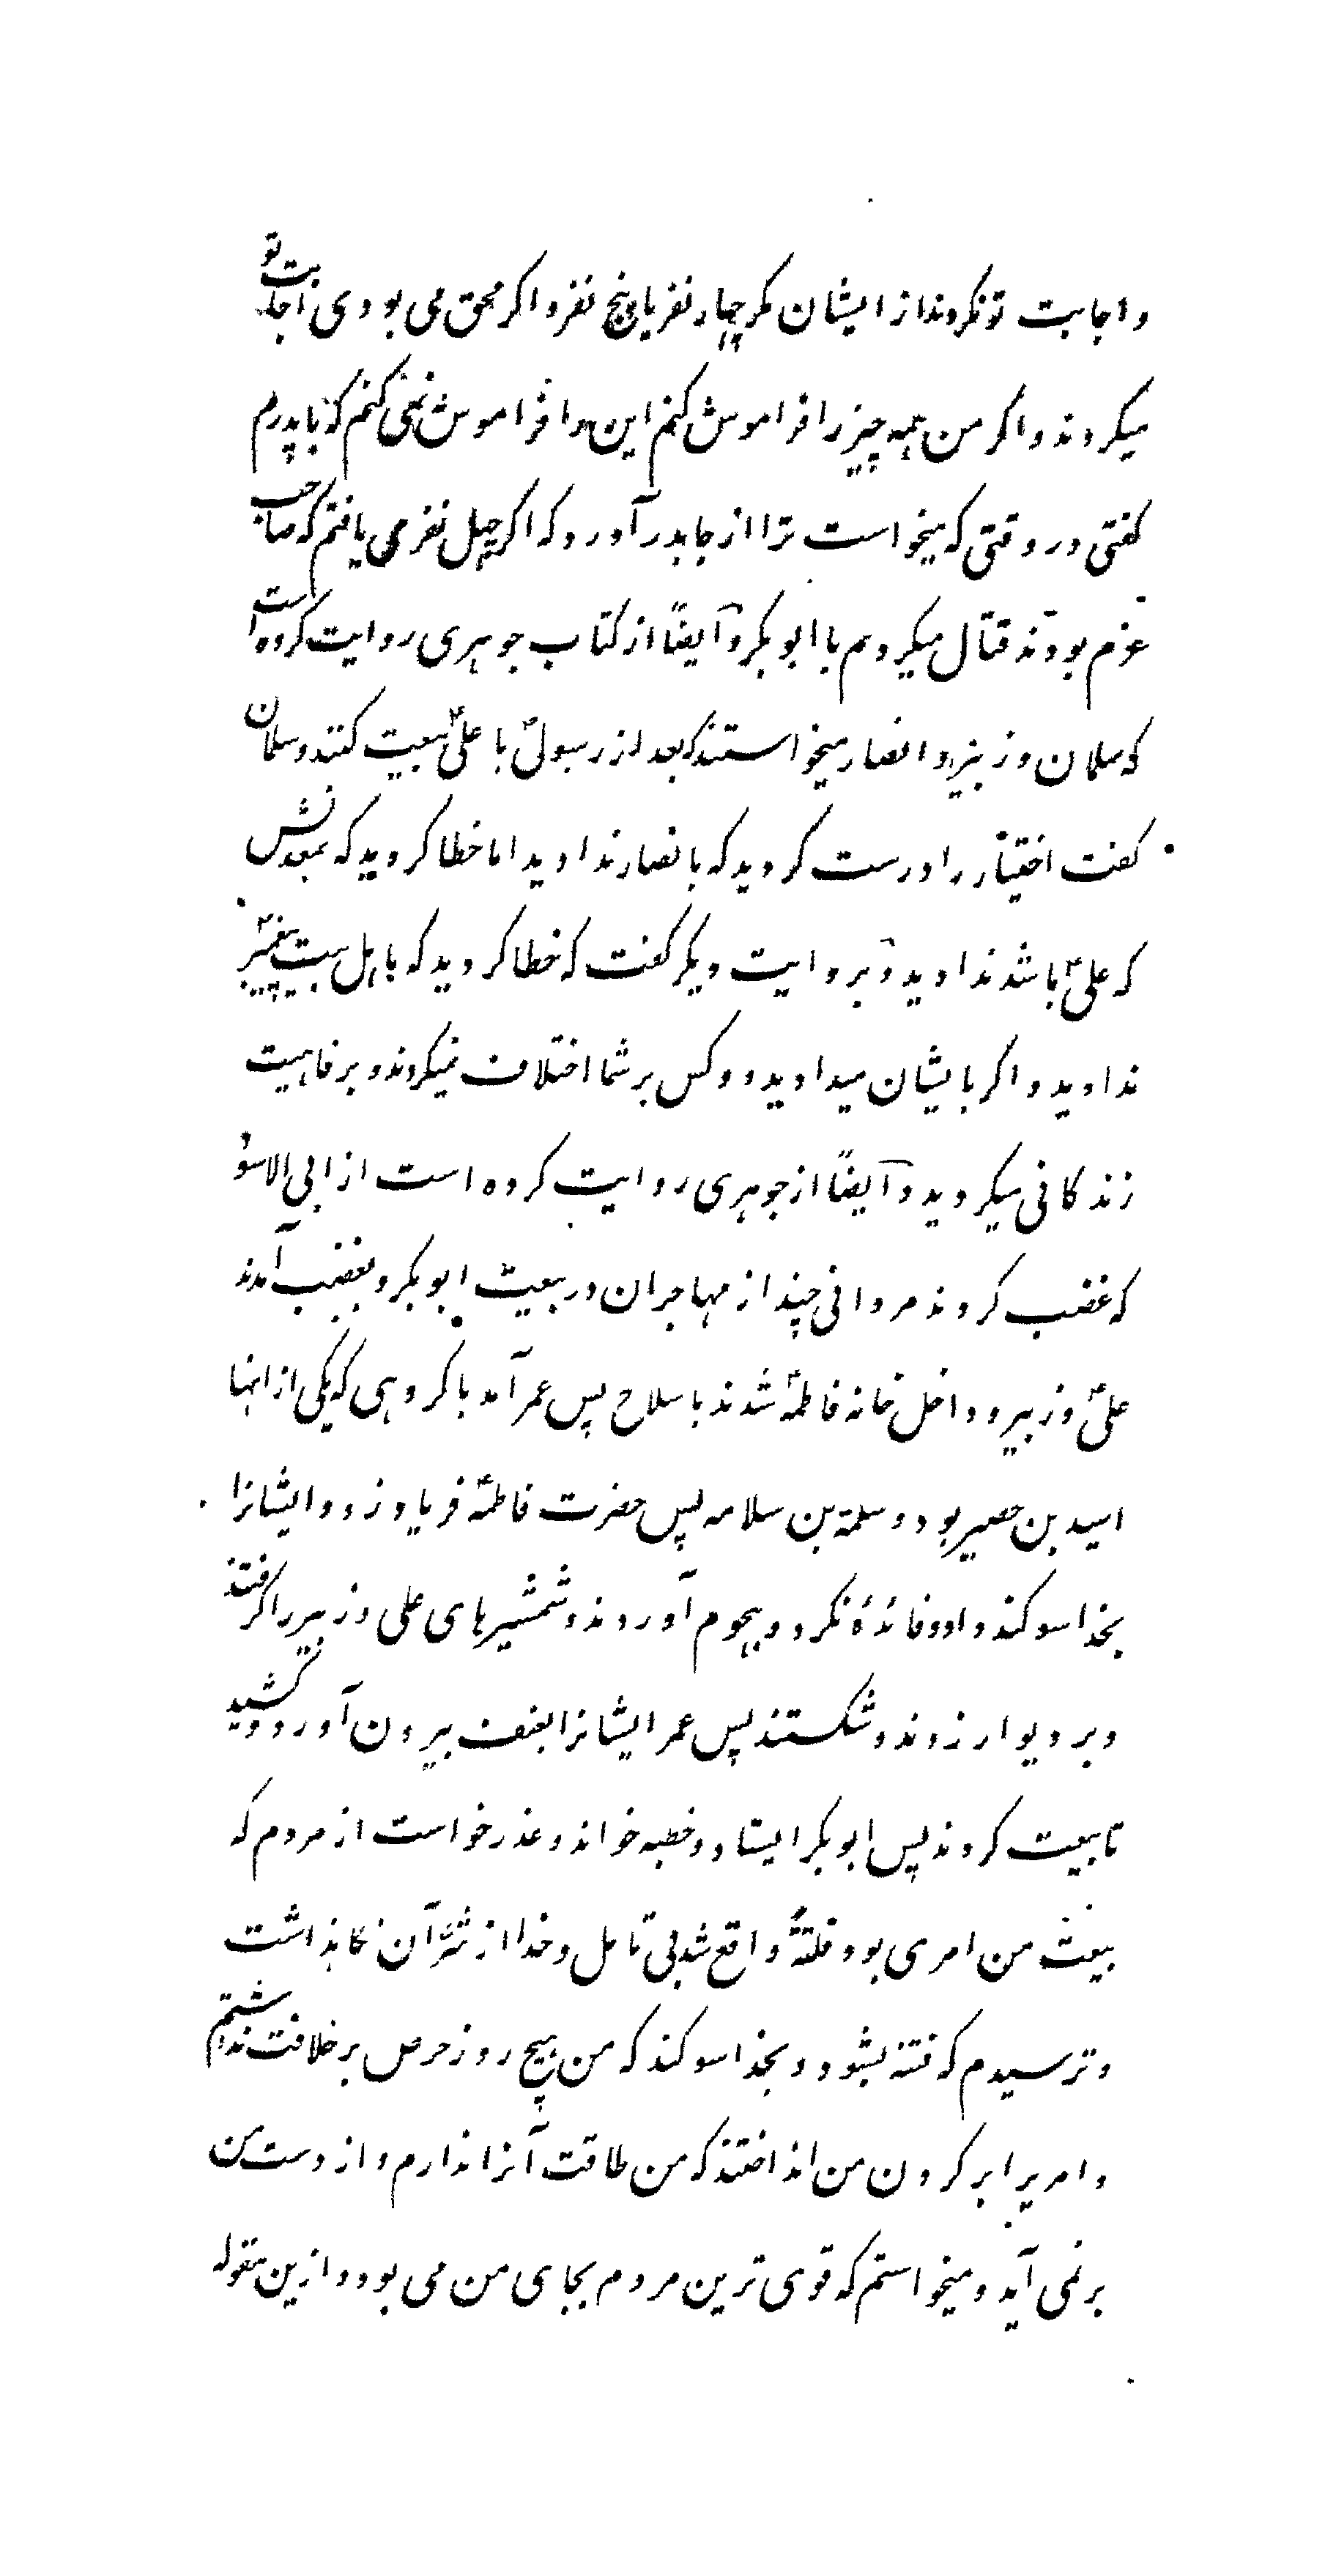 و اجابت تو نکردند از ایشان مکر چهار نفر یا پنج نفر و اکر محق می بودی اجابت تو
میکردند و اکر من همه چیز را فراموش کنم این را فراموش نمی کنم که با پدرم
کفتی در وقتی که میخواست ترا از جا بدر آورد که اکر چهل نفر می یافتم که صاحب
عزم بودند قتال میکردم با ابو بکر و ایضاً از کتاب جوهری روایت کرده است
که سلمان و زبیر و انصار میخواستند که بعد از رسولؐ با علیؑ بیعت کنند و سلمان
کفت اختیار را درست کردید که بانصار ندادید اما خطا کردید که بمعدنش
که علیؑ باشد ندادید و بروایت دیکر کفت که خطا کردید که باهل بیت پیغمبرؐ
ندادید و اکر بایشان میدادید دو کس بر شما اختلاف نمیکردند و برفاهیت
زندکانی میکردید و ایضاً از جوهری روایت کرده است از ابی الاسود
که غضب کردند مردانی چند از مهاجران در بیعت ابو بکر و بغضب آمدند
علیؑ و زبیر و داخل خانه فاطمهؑ شدند با سلاح پس عمر آمد با کروهی که یکی از انها
اسید بن حصیر بود و سلمة بن سلامه پس حضرت فاطمهؑ فریاد زد و ایشانرا
بخدا سوکند داد و فائدهٔ نکرد و هجوم آوردند و شمشیرهای علی و زبیر را کرفتند
و بر دیوار زدند و شکستند پس عمر ایشانرا بعنف بیرون آورد و کشید
تا بیعت کردند پس ابو بکر ایستاد و خطبه خواند و عذر خواست از مردم که
بیعت من امری بود فلتةً واقع شد بی تامل و خدا از شر آن نکاهداشت
و ترسیدم که فتنه بشود و بخدا سوکند که من هیچ روز حرص بر خلافت نداشتم
و امر برا بر کردن من انداختند که من طاقت آنرا ندارم و از دست من
بر نمی آید و میخواستم که قوی ترین مردم بجای من می بود و ازین مقوله